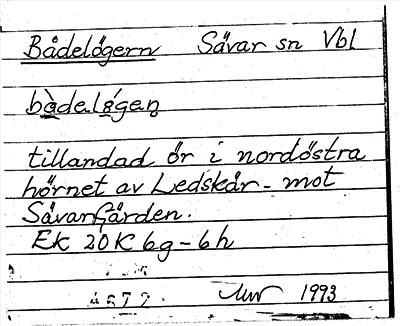 Bådelögern Sävar sn Vbl
bàdelǿgen
tillandad ör i nordöstra
hörnet av Ledskär - mot
Sävarfjärden.
EK 20K 6g-6h
1993